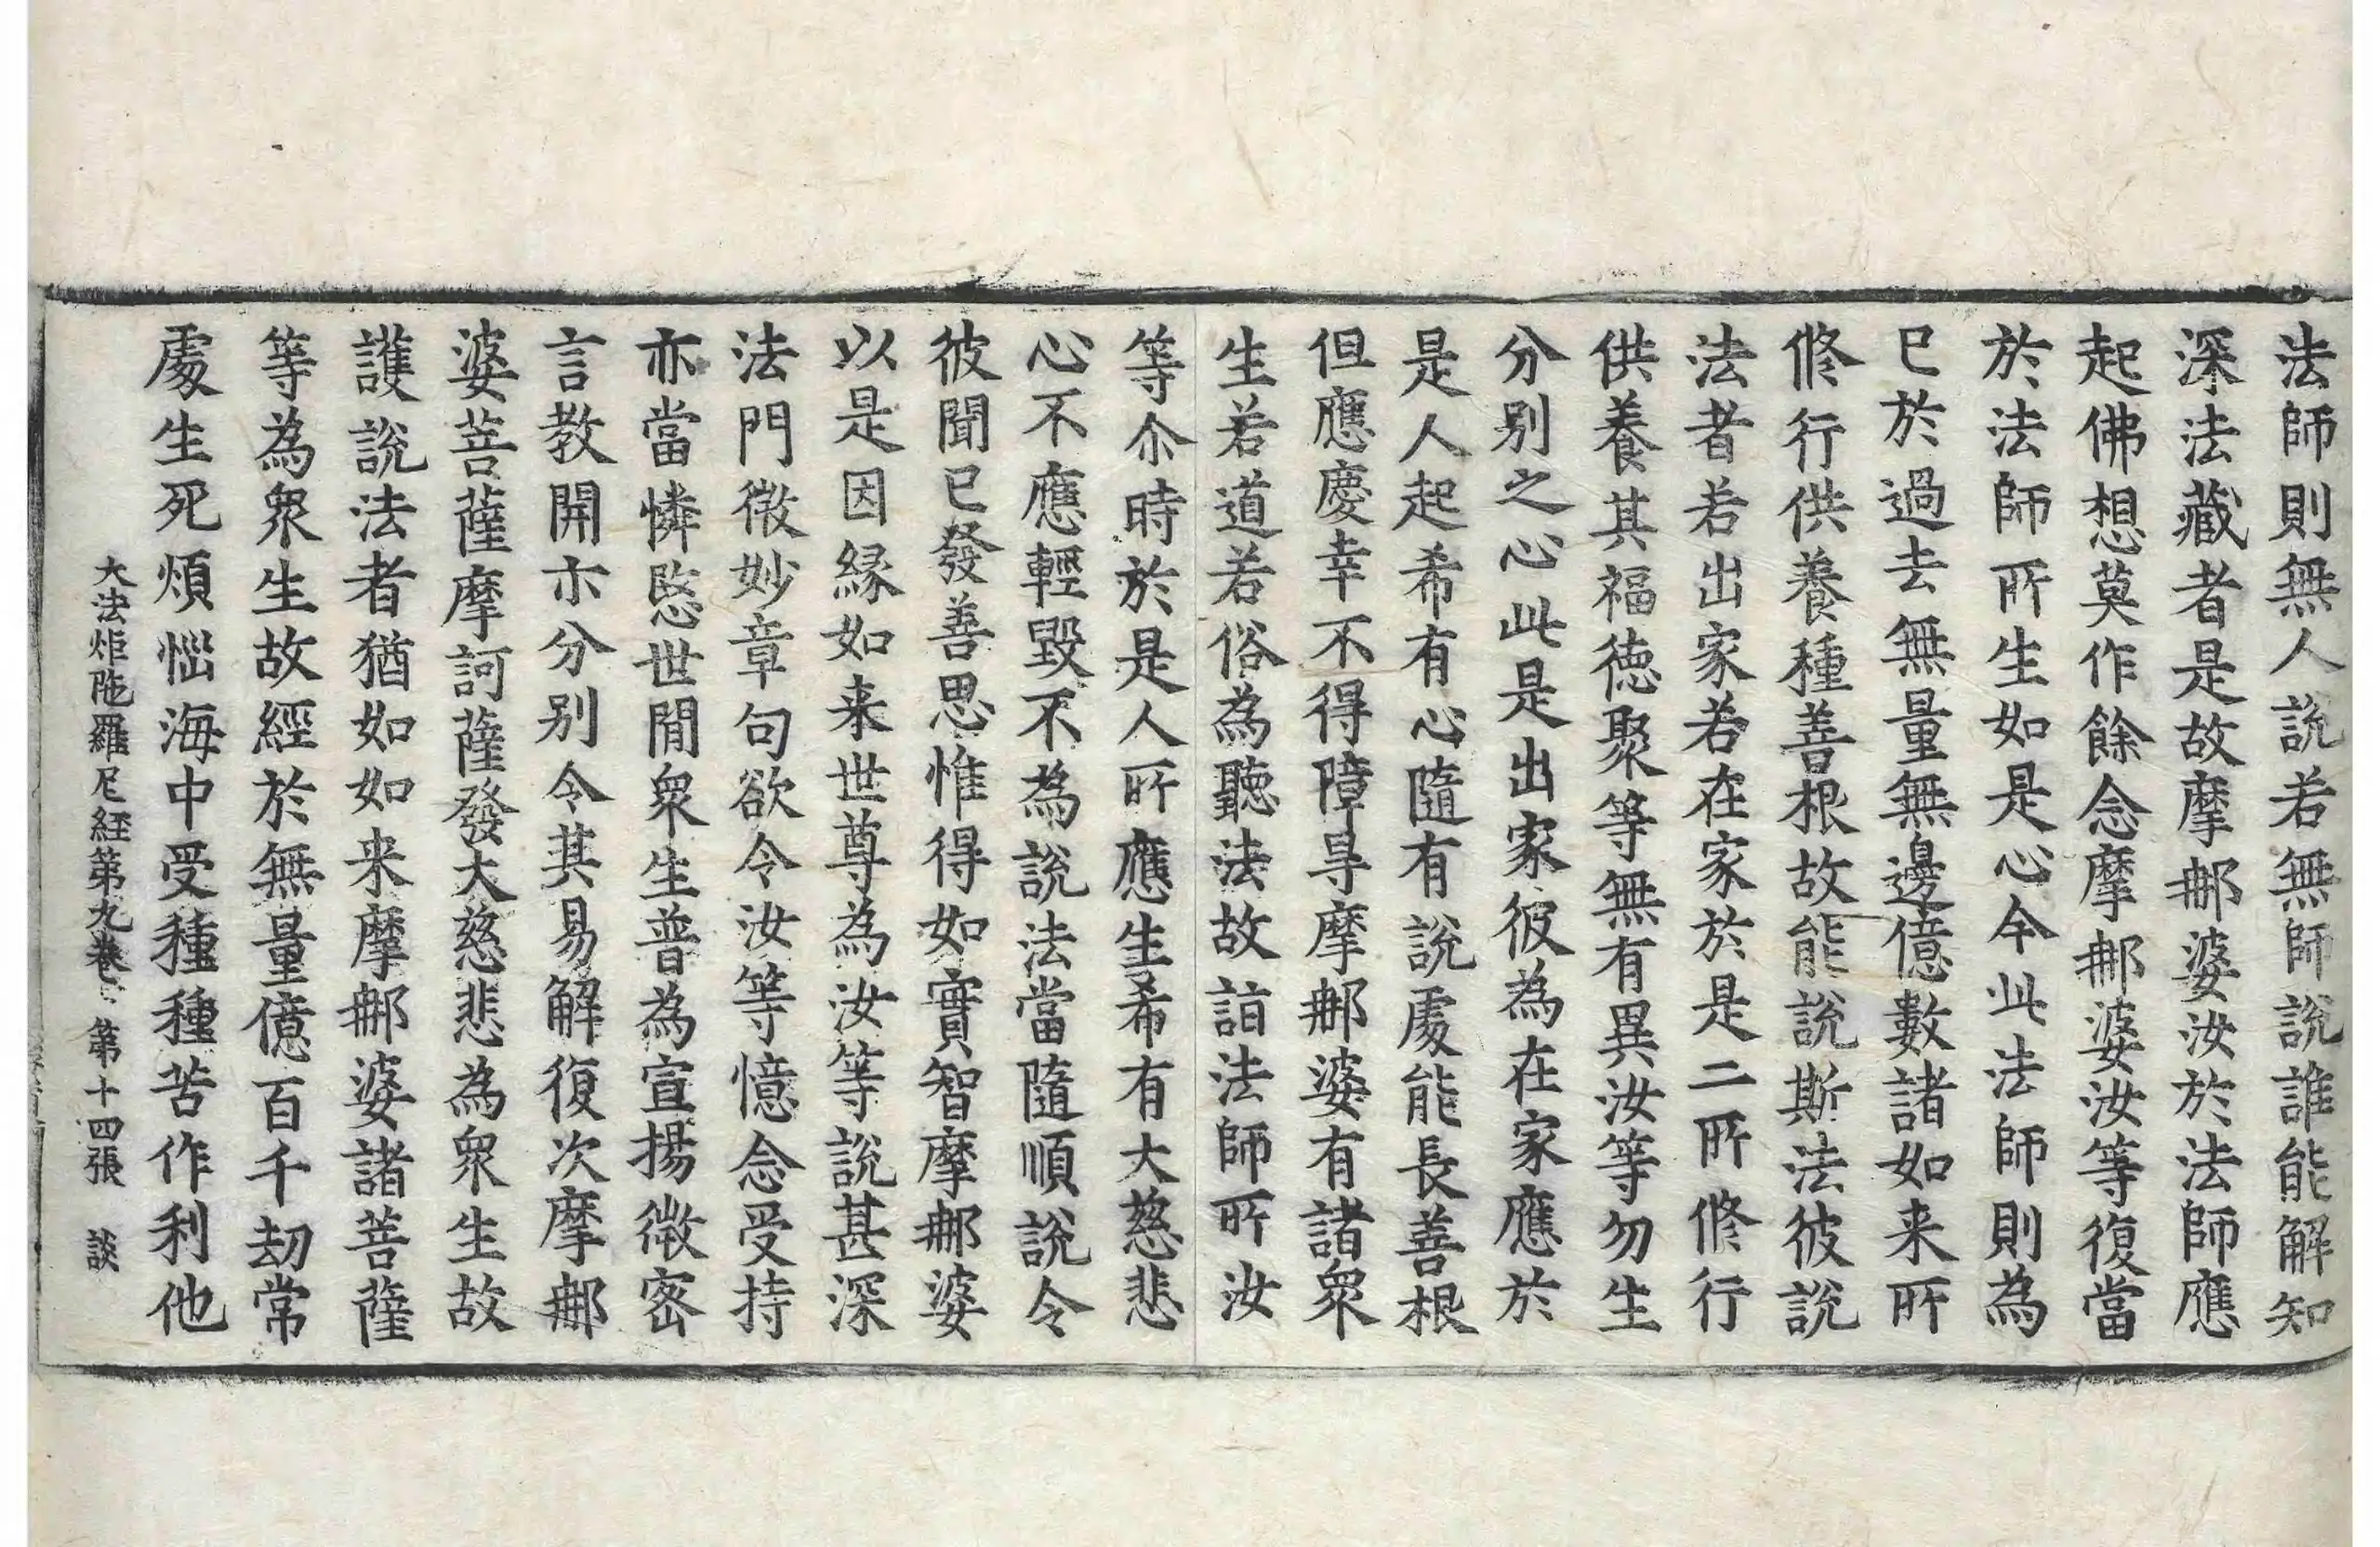 法師則無人說若無師說誰能解知
深法藏者是故摩那婆汝於法師應
起佛想莫作餘念摩那婆汝等復當
於法師所生如是心今此法師則為
已於過去無量無邊億數諸如来所
修行供養種善根故能說斯法彼說
法者若出家若在家於是二所修行
供養其福德聚等無有異汝等勿生
分別之心此是出家彼為在家應於
是人起希有心隨有說處能長善根
但應慶幸不得障㝵摩那婆有諸衆
生若道若俗為聽法故詣法師所汝
等尒時於是人所應生希有大慈悲
心不應輕毀不為說法當隨順說令
彼聞已發善思惟得如實智摩那婆
以是因緣如来世尊為汝等說甚深
法門微妙章句欲令汝等憶念受持
亦當憐愍世間衆生普為宣揚微密
言教開示分別令其易解復次摩那
婆菩薩摩訶薩發大慈悲為衆生故
護說法者猶如如来摩那婆諸菩薩
等為衆生故經於無量億百千劫常
處生死煩惱海中受種種苦作利他
大法炬陁羅尼経第九卷 第十四張 談